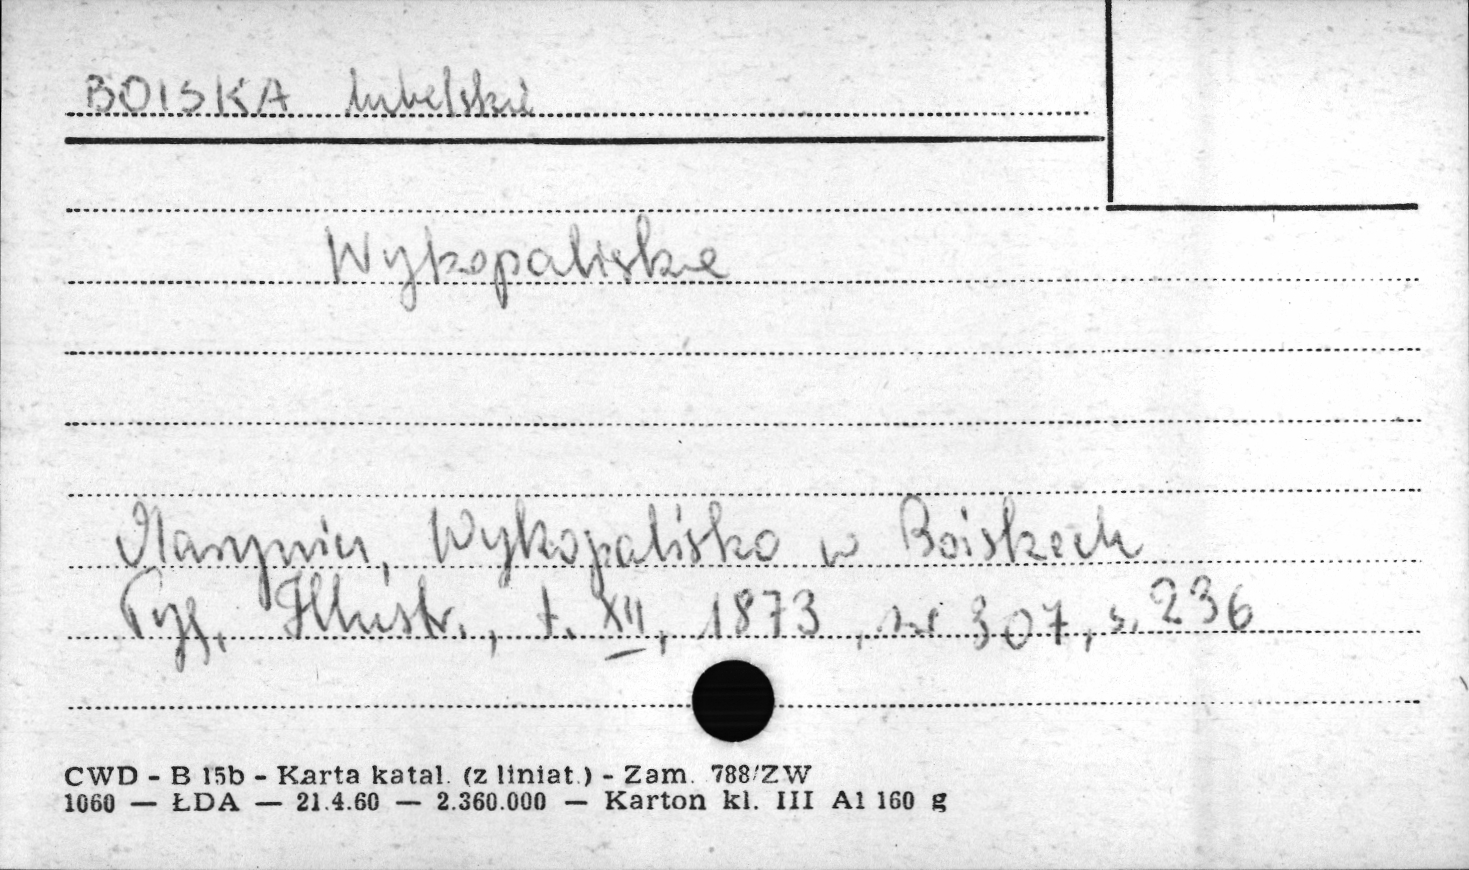 BOISKA lubelskie
Wykopaliska
Wykopalisko w Boiskach
Tyg. Illustr., t. XII, 1873, nr 307, s. 236
CWD - B 15b - Karta katal. (z liniat.) - Zam. 788/ZW
1060 — ŁDA — 21.4.60 — 2.360.000 — Karton kl. III A1 160 g